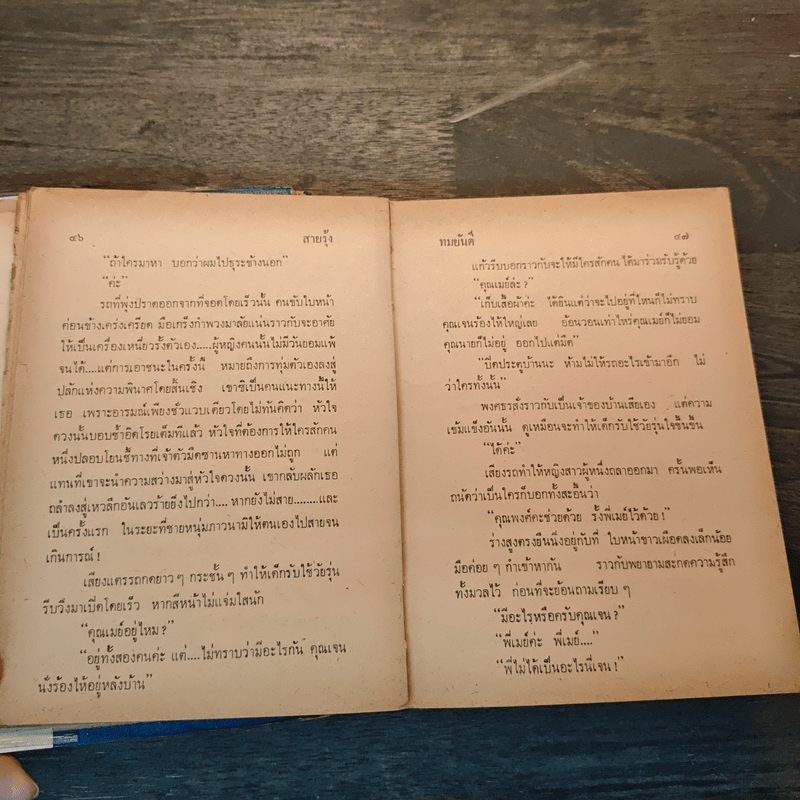 ๔๖
สายรุ้ง
"ถ้าใครมาหา บอกว่าผมไปธุระข้างนอก"
"ค่ะ"
รถที่พุ่งปราดออกจากที่จอดโดยเร็วนั้น คนขับใบหน้า
ค่อนข้างเคร่งเครียด มือเกร็งกำพวงมาลัยแน่นราวกับจะอาศัย
ให้เป็นเครื่องเหนี่ยวรั้งตัวเอง.....ผู้หญิงคนนั้นไม่มีวันยอมแพ้
จนได้....แต่การเอาชนะในครั้งนี้ หมายถึงการทุ่มตัวเองลงสู่
ปลักแห่งความพินาศโดยสิ้นเชิง เขาซิเป็นคนแนะทางนี้ให้
เธอ เพราะอารมณ์เพียงชั่วแวบเดียวโดยไม่ทันคิดว่า หัวใจ
ดวงนั้นบอบช้ำอิดโรยเต็มทีแล้ว หัวใจที่ต้องการให้ใครสักคน
หนึ่งปลอบโยนชี้ทางที่เจ้าตัวมืดซานหาทางออกไม่ถูก แต่
แทนที่เขาจะนำความสว่างมาสู่หัวใจดวงนั้น เขากลับผลักเธอ
ถลำลงสู่เหวลึกอันเลวร้ายยิ่งไปกว่า.... หากยังไม่สาย........และ
เป็นครั้งแรก ในระยะที่ชายหนุ่มภาวนามิให้ตนเองไปสายจน
เกินการณ์ !
เสียงแตรรถกดยาว ๆ กระชั้น ๆ ทำให้เด็กรับใช้วัยรุ่น
รีบวิ่งมาเปิดโดยเร็ว หากสีหน้าไม่แจ่มใสนัก
"คุณเมย์อยู่ไหม ?"
"อยู่ทั้งสองคนค่ะ แต่....ไม่ทราบว่ามีอะไรกัน คุณเจน
นั่งร้องไห้อยู่หลังบ้าน"
ทมยันตี
๔๗
แก้วรีบบอกราวกับจะให้มีใครสักคน ได้มาร่วมรับรู้ด้วย
"คุณเมย์ล่ะ ?"
"เก็บเสื้อผ้าค่ะ ได้ยินแต่ว่าจะไปอยู่ที่ไหนก็ไม่ทราบ
คุณเจนร้องไห้ใหญ่เลย อ้อนวอนเท่าไหร่คุณเมย์ก็ไม่ยอม
คุณนายก็ไม่อยู่ ออกไปแต่มืด"
"ปิดประตูบ้านนะ ห้ามไม่ให้รถอะไรเข้ามาอีก ไม่
ว่าใครทั้งนั้น"
พงศธรสั่งราวกับเป็นเจ้าของบ้านเสียเอง แต่ความ
เข้มแข็งอันนั้น ดูเหมือนจะทำให้เด็กรับใช้วัยรุ่นใจชื้นขึ้น
"ได้ค่ะ"
เสียงรถทำให้หญิงสาวผู้หนึ่งถลาออกมา ครั้นพอเห็น
ถนัดว่าเป็นใครก็บอกทั้งสะอื้นว่า
"คุณพงศ์คะช่วยด้วย รั้งพี่เมย์ไว้ด้วย !"
ร่างสูงตรงยืนนิ่งอยู่กับที่ ใบหน้าขาวเผือดลงเล็กน้อย
มือค่อย ๆ กำเข้าหากัน ราวกับพยายามสะกดความรู้สึก
ทั้งมวลไว้ ก่อนที่จะย้อนถามเรียบ ๆ
"มีอะไรหรือครับคุณเจน ?"
"พี่เมย์ค่ะ พี่เมย์...."
"พี่ไม่ได้เป็นอะไรนี่เจน !"